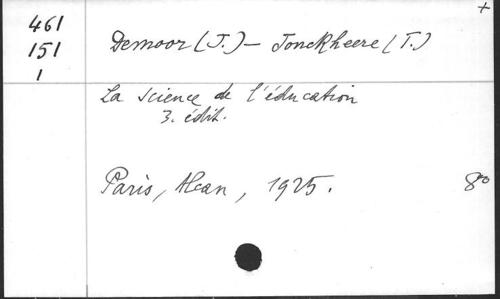 +
461
151
1
Demoor (J.) - Jonckheere (T.)
La Science de l'éducation
3. édit.
Paris, Alcan, 1925.
8°